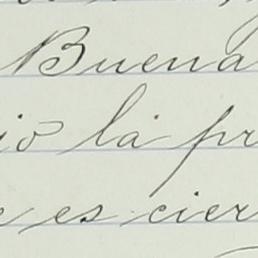 Buena
io la pr
e es cier